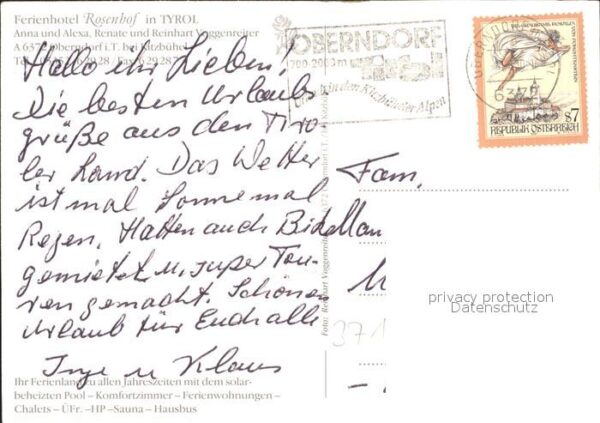 Ferienhotel Rosenhof in TYROL
Anna und Alexa, Renate und Reinhart Voggenreiter
A 6372 Oberndorf i.T. bei Kitzbühel
Hallo ihr Lieben!
Die besten Urlaubs
grüße aus den Tiro
ler Land. Das Wetter
ist mal Sonne mal
Regen. Hatten auch
gemietet u. super Tou-
ren gemacht. Schönen
Urlaub für Euch alle
Inge u Klaus
Ihr Ferienland zu allen Jahreszeiten mit dem solar-
beheizten Pool – Komfortzimmer – Ferienwohnungen –
Chalets – ÜFr. –HP –Sauna – Hausbus
Foto: Reinhart Voggenreiter
OBERNDORF
700-2000 m
in den Kitzbüheler Alpen
OBERNDORF
6372
REPUBLIK ÖSTERREICH
S7
Fam.
M
371
privacy protection
Datenschutz